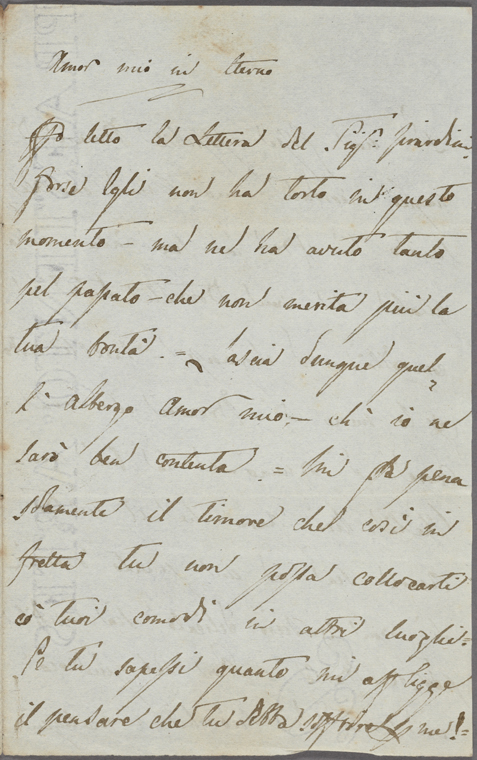 Amor mio in Eterno
Ho letto la Lettera del Sigr.
forse Egli non ha torto in questo
momento – ma ne ha avuto tanto
pel passato – che non merita piú la
tua bontà. = Lascia dunque quel
l'albergo Amor mio; – chè io ne
sarò ben contenta. = Mi dà pena
solamente il timore che così in
fretta tu non possa collocarti
co' tuoi comodi in altri luoghi =
Se tu sapessi quanto mi affligge
il pensare che tu debba soffrire per me! =